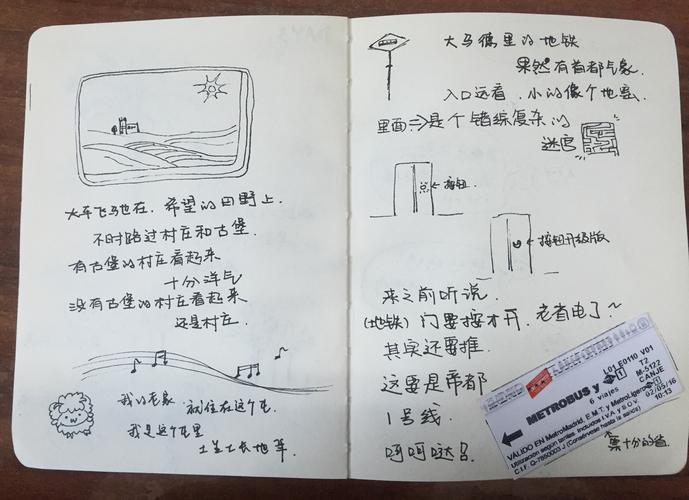 大车飞驰在,希望的田野上.
不时路过村庄和古堡.
有古堡的村庄看起来
十分洋气
没有古堡的村庄看起来
还是村庄.
我的老家 就住在这个屯
我是这个屯里
土生土长地
大马德里的地铁
果然有首都气象.
入口远看,小的像个地窖.
里面⇒是个错综复杂的
迷宫
←按钮.
←按钮升级版
来之前听说.
(地铁)门要按才开,老省电了~
其实还要推
这要是帝都
1号线.
呵呵哒!
L01 E0110 V01
T2
METROBUS y
M-5122
6 viajes
CANJE
02/05/16
10:13
VÁLIDO EN MetroMadrid, E.M.T. y MetroLigero
C.I.F. Q-7850003 J (Consérvese hasta la salida)
票十分的值.